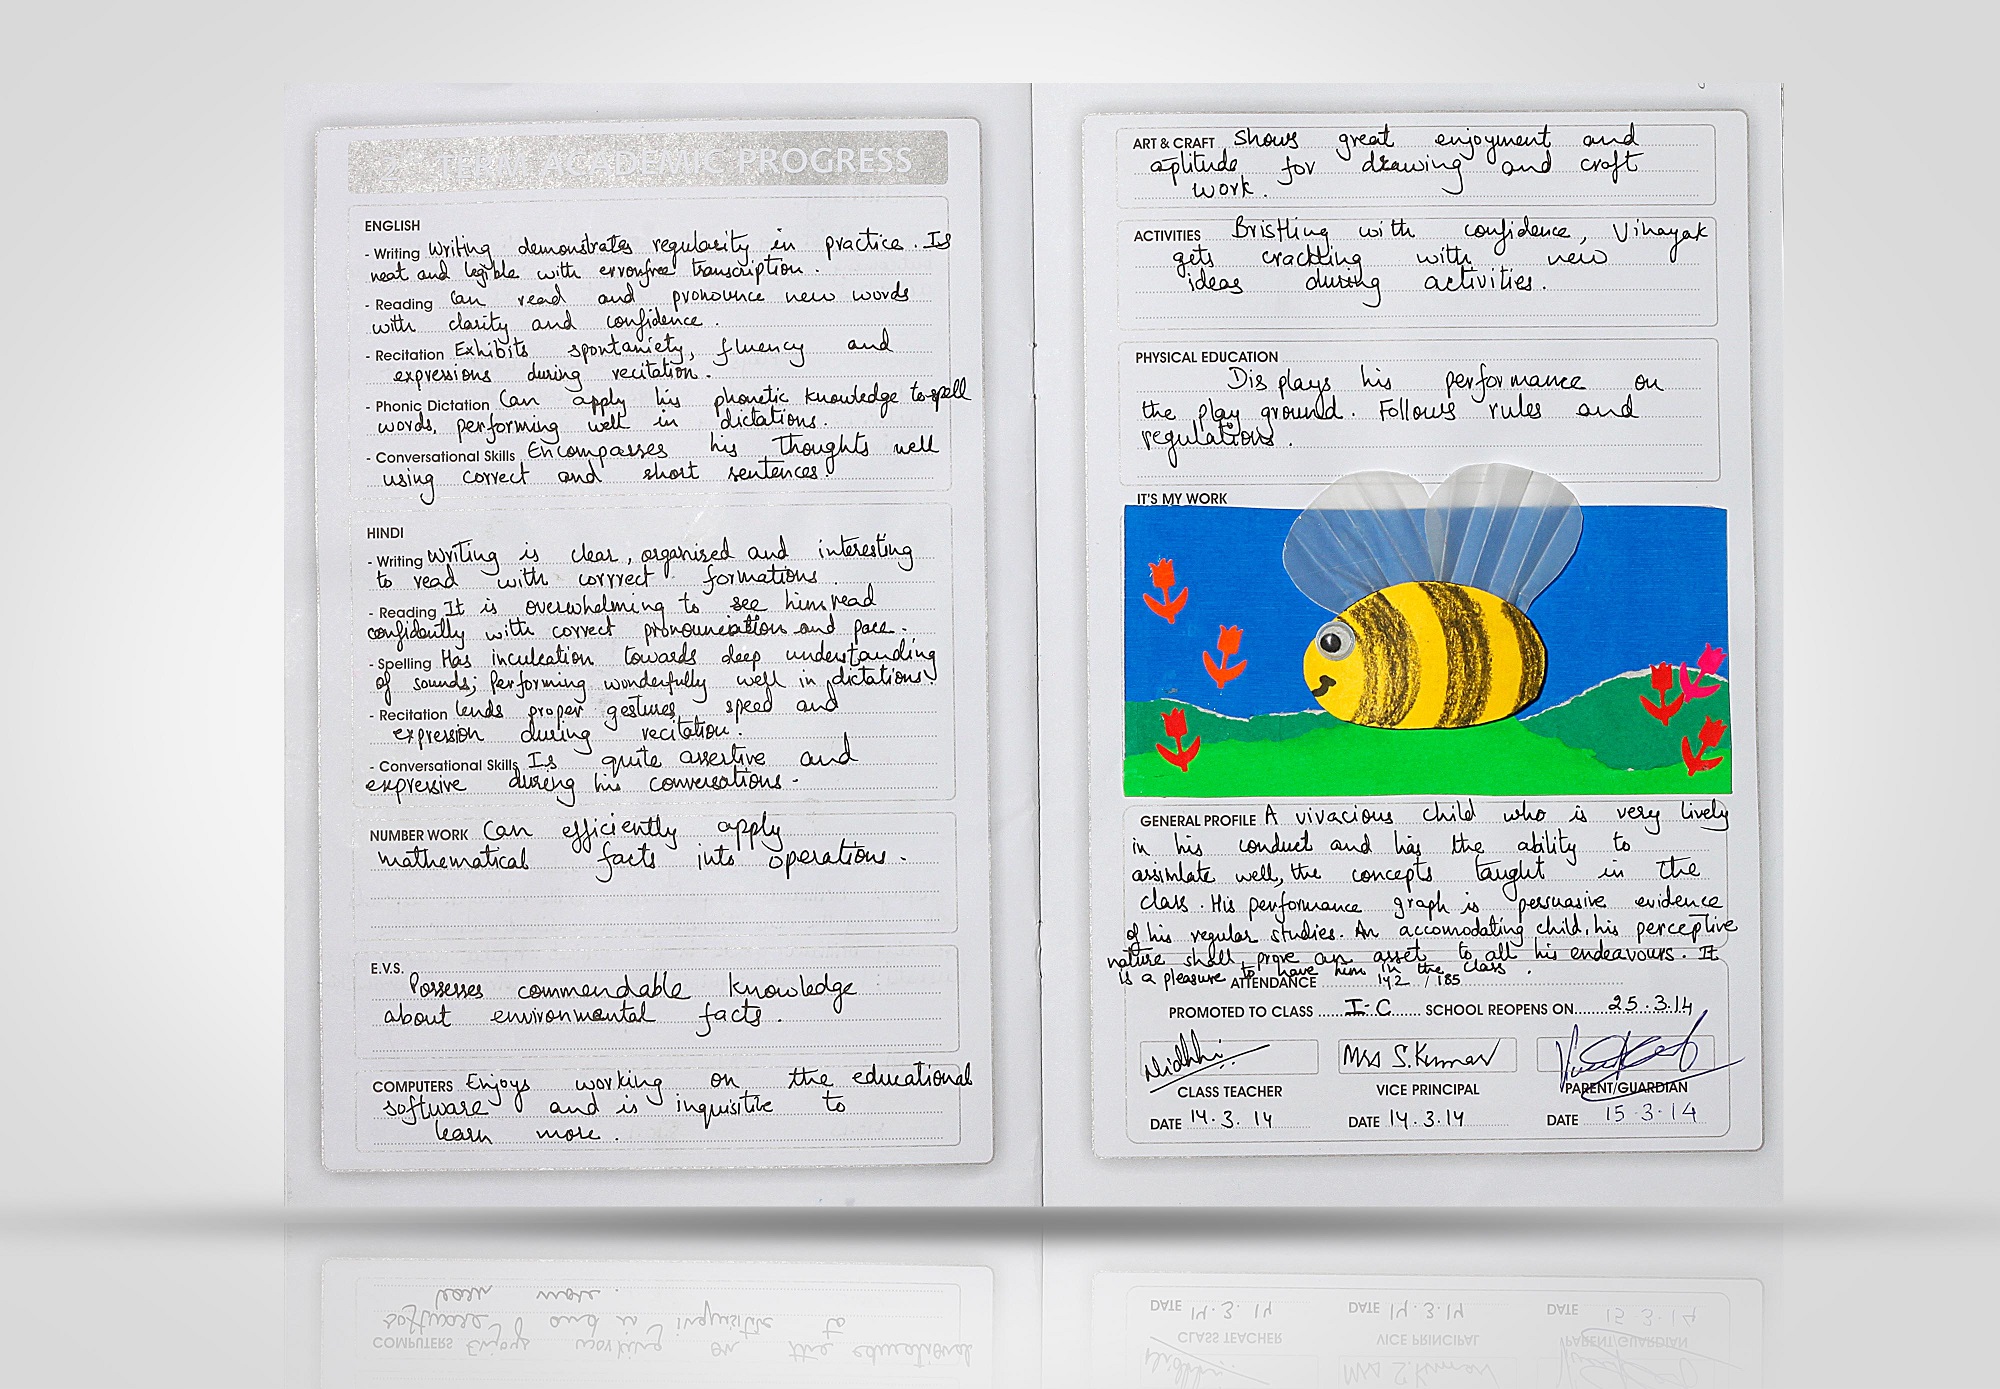 2nd TERM ACADEMIC PROGRESS
ENGLISH
- Writing Writing demonstrates regularity in practice. Is
neat and legible with errorfree transcription.
- Reading Can read and pronounce new words
with clarity and confidence.
- Recitation Exhibits spontaniety, fluency and
expressions during recitation.
- Phonic Dictation Can apply his phonetic knowledge to spell
words, performing well in dictations.
- Conversational Skills Encompasses his thoughts well
using correct and short sentences.
HINDI
- Writing Writing is clear, organised and interesting
to read with corrrect formations.
- Reading It is overwhelming to see him read
confidently with correct pronounciation and pace.
- Spelling Has inculcation towards deep understanding
of sounds; performing wonderfully well in dictations.
- Recitation Lends proper gestures, speed and
expression during recitation.
- Conversational Skills Is quite assertive and
expressive during his conversations.
NUMBER WORK Can efficiently apply
mathematical facts into operations.
E.V.S.
Possesses commendable knowledge
about environmental facts.
COMPUTERS Enjoys working on the educational
software and is inquisitive to
learn more.
ART & CRAFT Shows great enjoyment and
aptitude for drawing and craft
work.
ACTIVITIES Bristling with confidence, Vinayak
gets crackling with new
ideas during activities.
PHYSICAL EDUCATION
Displays his performance on
the play ground. Follows rules and
regulations.
IT'S MY WORK
GENERAL PROFILE A vivacious child who is very lively
in his conduct and has the ability to
assimlate well, the concepts taught in the
class. His performance graph is persuasive evidence
of his regular studies. An accomodating child, his perceptive
nature shall prove an asset to all his endeavours. It
is a pleasure to have him in the class.
ATTENDANCE 142 / 185
PROMOTED TO CLASS I-C SCHOOL REOPENS ON 25.3.14
Nidhhi Mrs S.Kumar
CLASS TEACHER VICE PRINCIPAL PARENT/GUARDIAN
DATE 14.3.14 DATE 14.3.14 DATE 15.3.14